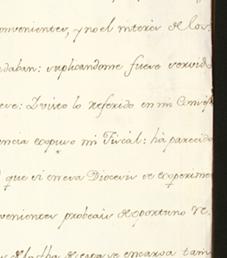 convenientes, y no el interes de los
daban: suplicandome fuese servido
eve: I visto lo referido en mi Consejo
encia expuso mi Fiscal: ha parecido
que si en esa Diocesis se experimen
venientes probeais de oportuno Re
de la fha de esta se encarga tam